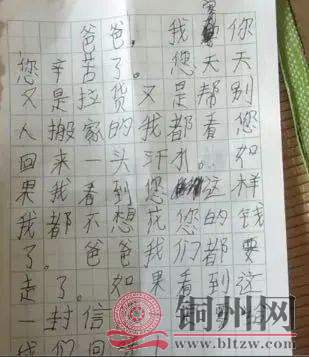 爸爸，我你
您辛苦了。您天天
又是拉货又是帮别
人搬家的我都看您
回来一头汗水。如
果我看到您这样
我都不想花您的钱
了。爸爸我们都要
走了。如果看到这
一封信
我们回
铜州网
www.bltzw.com